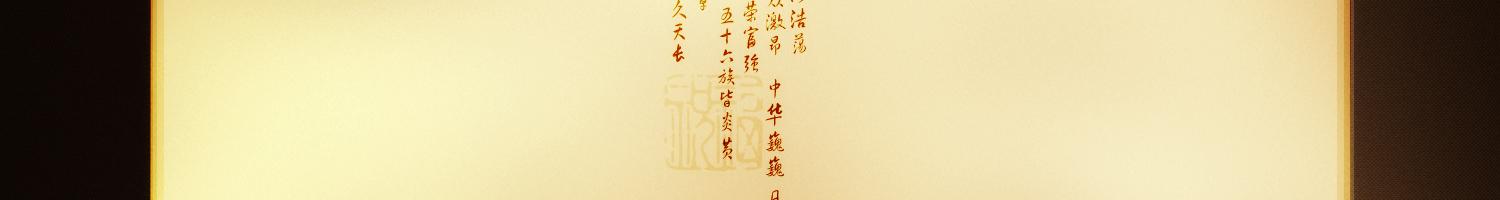 浩荡
激昂 中华巍巍
荣富强
五十六族皆炎黄
久天长